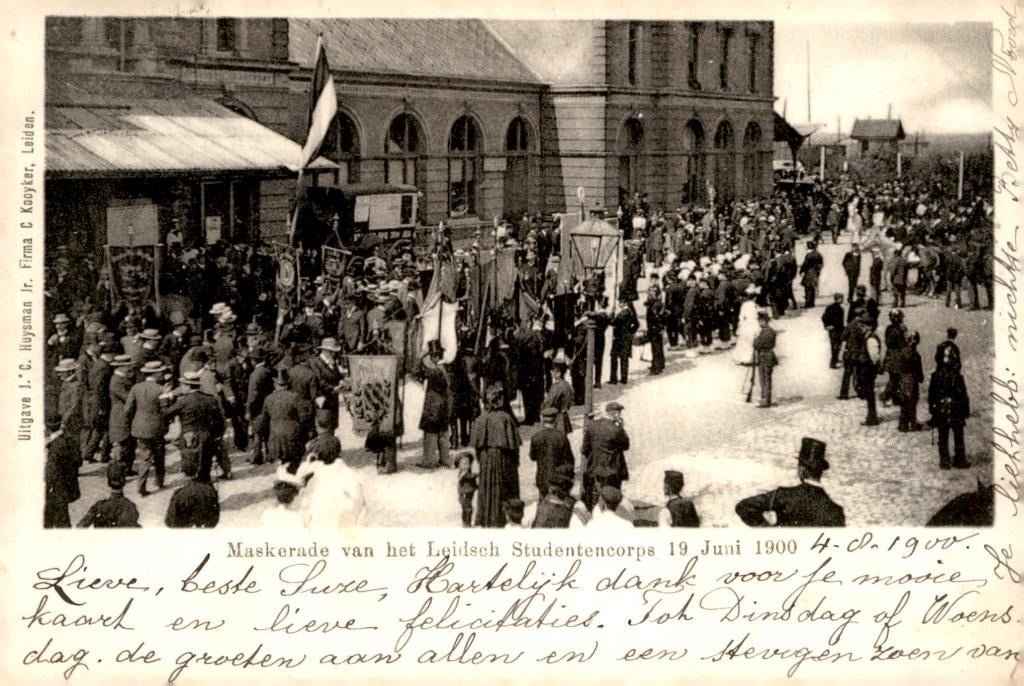 Uitgave J. C. Huysman Jr. Firma C Kooyker, Leiden.
Maskerade van het Leidsch Studentencorps 19 Juni 1900
4-8-1900.
Lieve, beste Suze, Hartelijk dank voor je mooie
kaart en lieve felicitaties. Tot Dinsdag of Woens-
dag. de groeten aan allen en een stevigen zoen van
Je liefhebb: nichtje Betsy